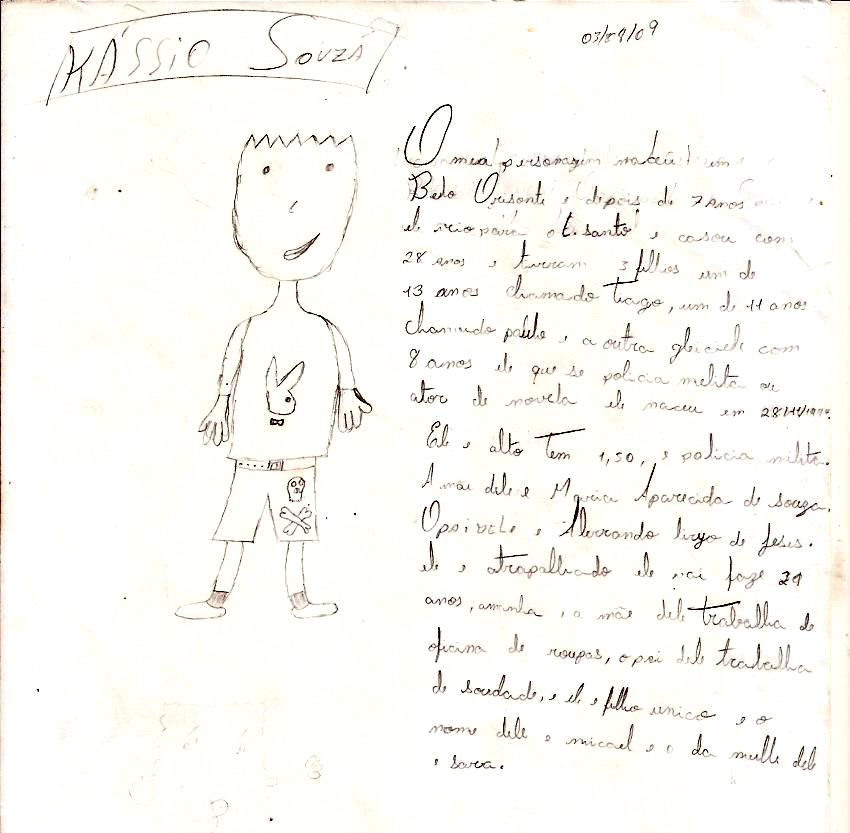 KÁSSIO SOUZA
03/09/09
O meu personagem naceu um
Belo Orisonte e depois de 7 anos
ele veio para o E. santo e casou com
28 anos e tiveram 3 filhos um de
13 anos chamado Tiago, um de 11 anos
chamado paulo e a outra gleiciele com
8 anos ele que se policia melita ou
ator de novela ele naceu em 28/11/1970.
Ele e alto Tem 1,50, e policia melita.
A mãe dele e Maria Aparecida de souza.
O pai dele e de Jesus.
ele e atrapalhado ele vai faze 29
anos, amanha, a mãe dele Trabalha de
oficina de roupas, o pai dele trabalha
de soudado, e ele e filho unico e o
nome dele e micael e o da mulhe dele
e sara.